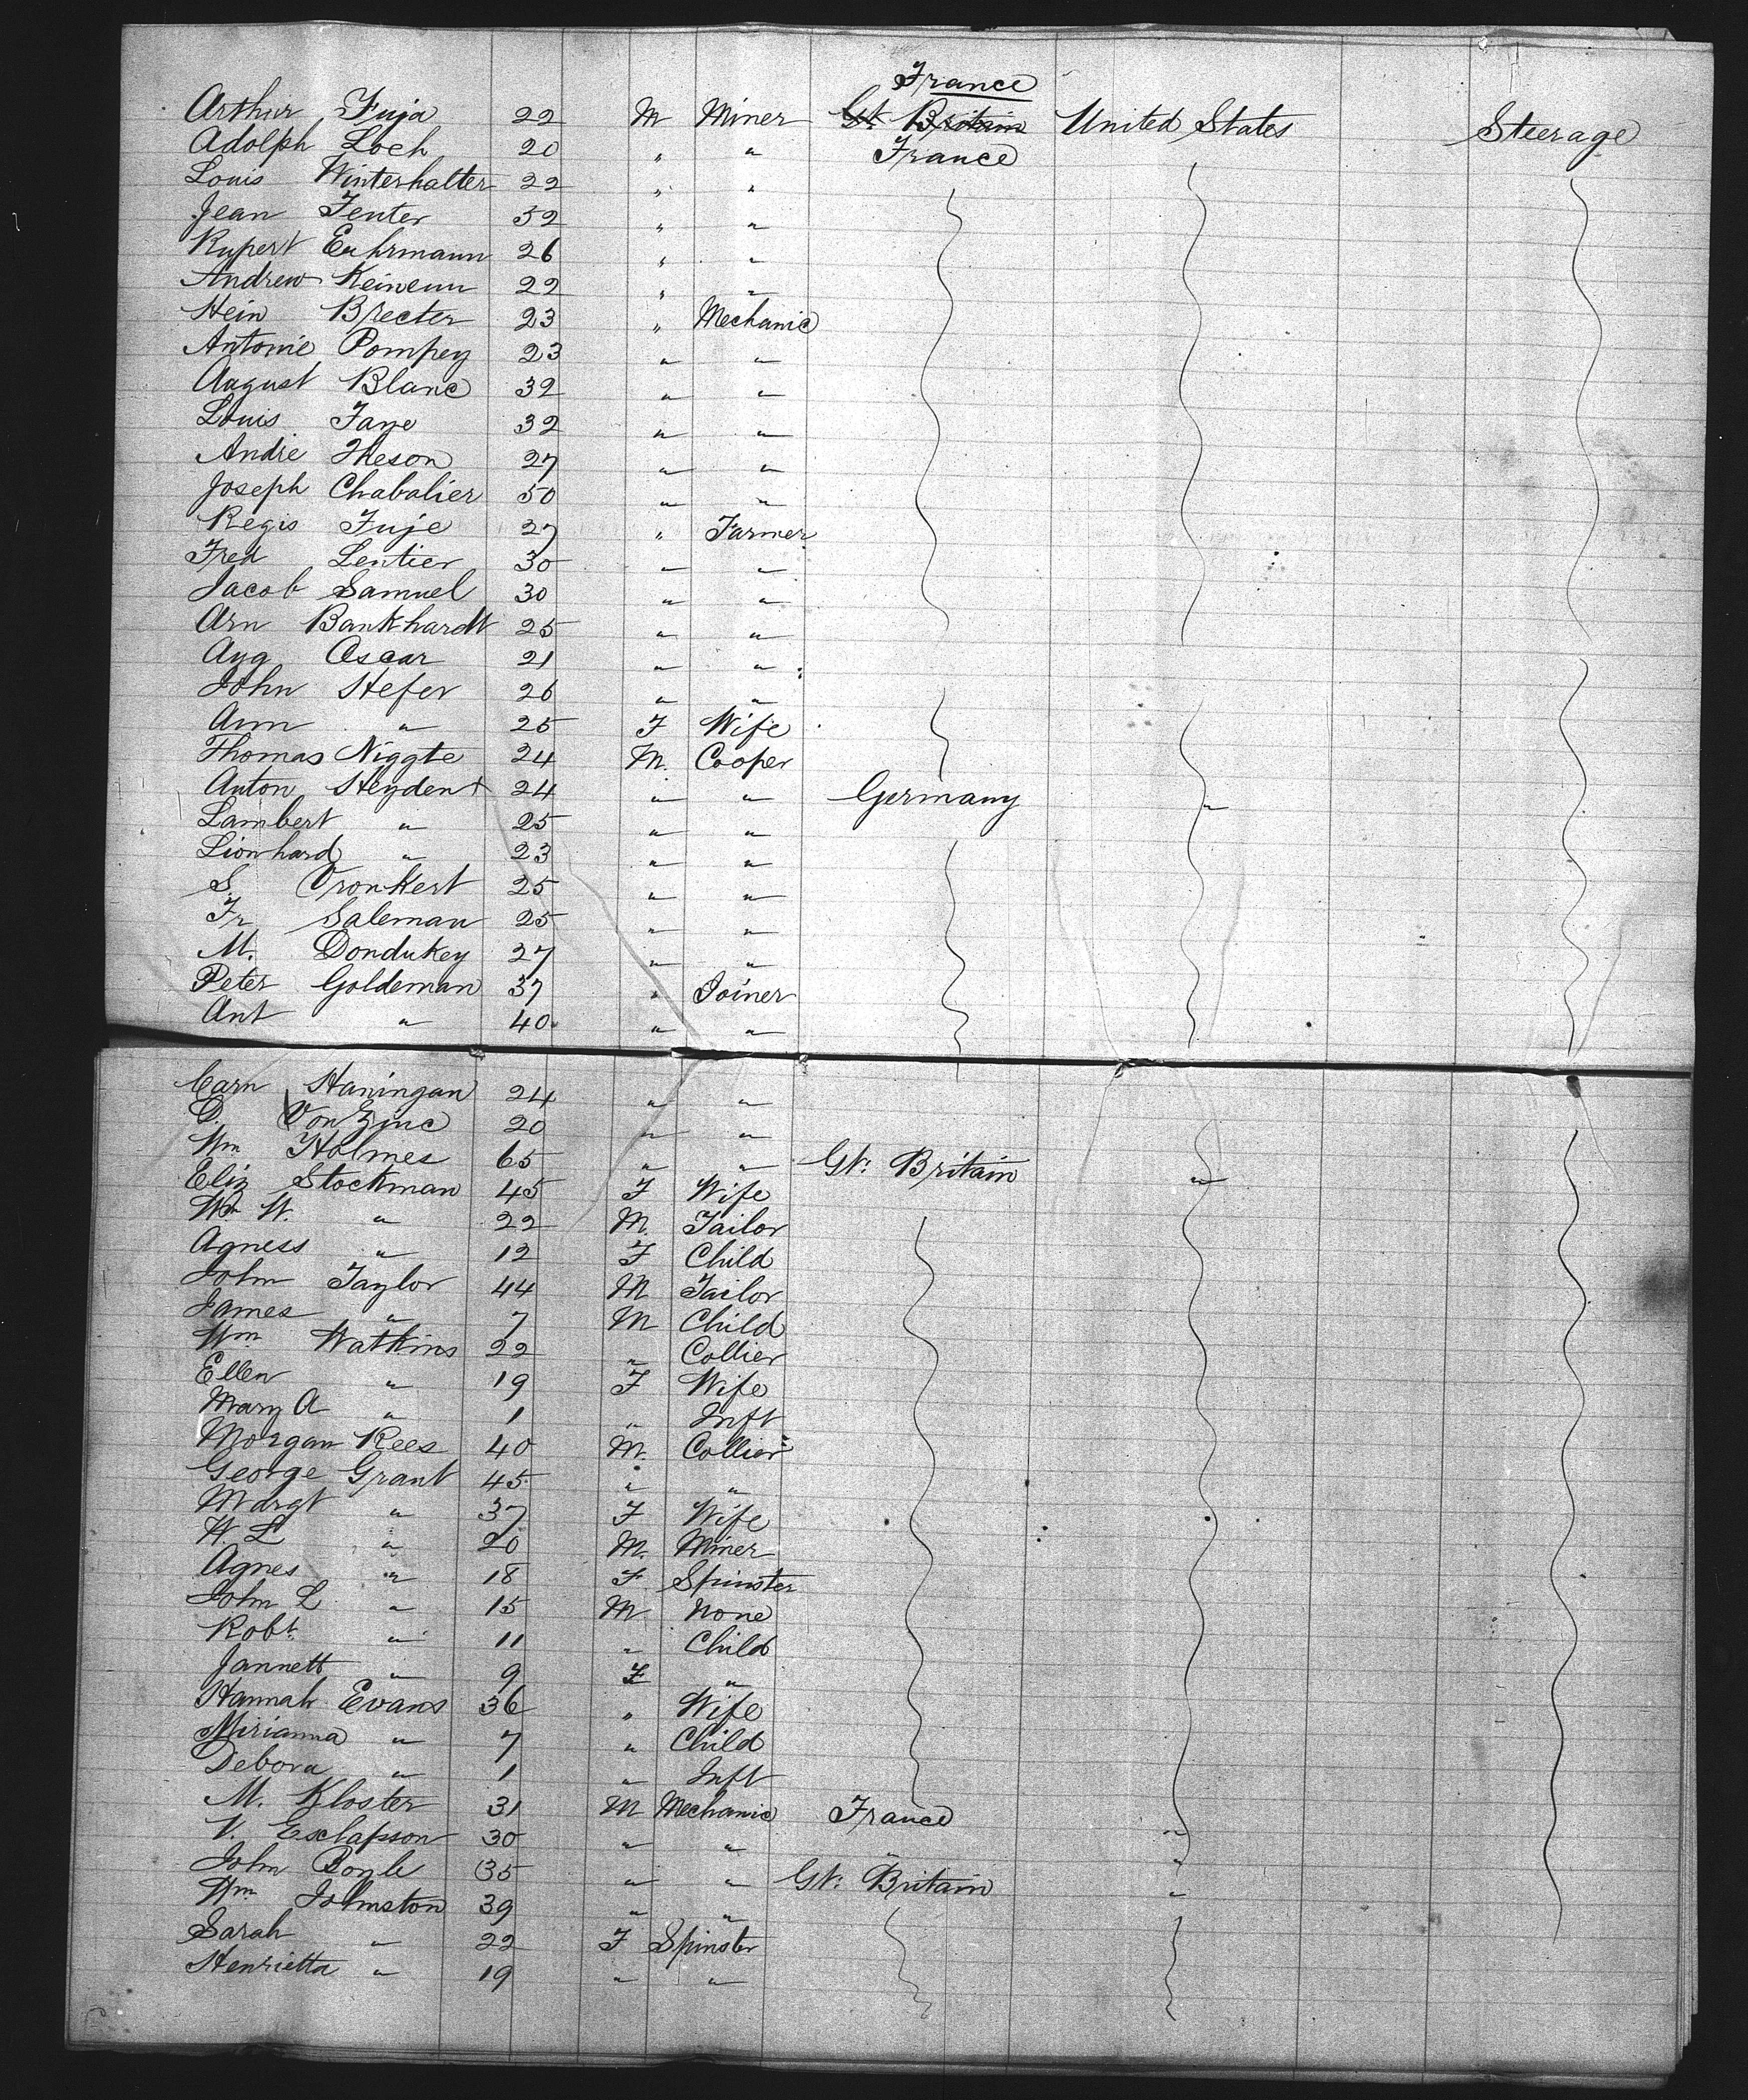 France
Arthur Fuja 22 M Miner Gt. Britain United States Steerage
Adolph Loch 20 " " France
Louis Winterhalter 22 " "
Jean Fenter 32 " "
Rupert Euhrmann 26 " "
Andrew Keinenn 22 " "
Hein Brecter 23 " Mechanic
Antonie Pompey 23 " "
August Blanc 32 " "
Louis Faye 32 " "
Andre Theson 27 " "
Joseph Chabalier 50 " "
Regis Fuje 27 " Farmer
Fred Lentier 30 " "
Jacob Samuel 30 " "
Arn Bankhardt 25 " "
Aug Oscar 21 " "
John Hefer 26 " "
Ann " 25 F Wife
Thomas Niggte 24 M. Cooper
Anton Heyden + 24 " " Germany "
Lambert " 25 " "
Lionhard " 23 " "
S. Vronkert 25 " "
Fr Saleman 25 " "
M. Dondukey 27 " "
Peter Goldeman 37 " Joiner
Ant " 40 " "
Carn Haningan 24 " "
D. Von Zinc 20 " "
Wm Holmes 65 " " Gt. Britain "
Eliz Stockman 45 F Wife
Wm W. " 22 M. Tailor
Agness " 12 F Child
John Taylor 44 M Tailor
James " 7 M Child
Wm Watkins 22 " Collier
Ellen " 19 F Wife
Mary A " 1 " Inft
Morgan Rees 40 M. Collier
George Grant 45 " "
Margt " 37 F Wife
W. L " 20 M. Miner
Agnes " 18 F Spinster
John L " 15 M None
Robt. " 11 " Child
Jannett " 9 F "
Hannah Evans 36 " Wife
Mirianna " 7 " Child
Debora " 1 " Inft
M. Kloster 31 M Mechanic France "
V. Esclapson 30 " " " "
John Boyle 35 " " Gt. Britain "
Wm Johnston 39 " "
Sarah " 22 F Spinster
Henrietta " 19 " "